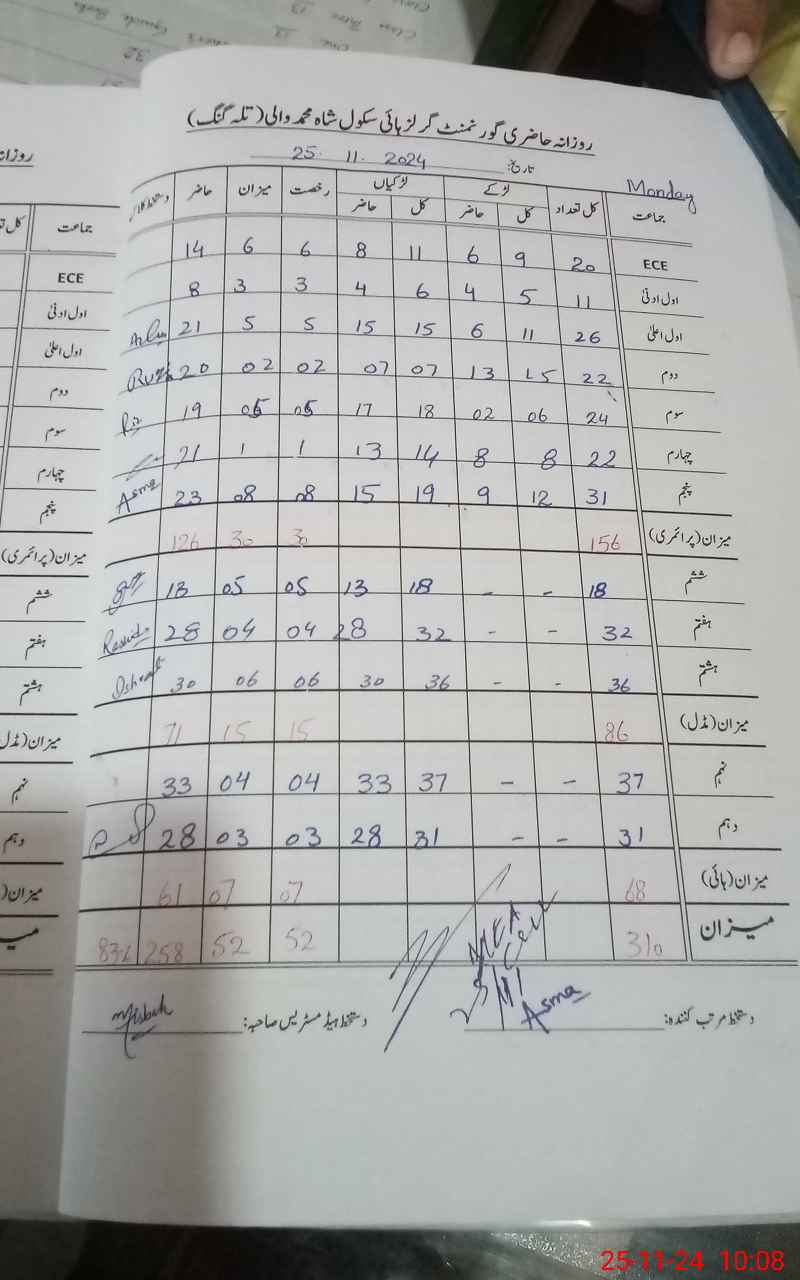 روزانہ حاضری گورنمنٹ گرلز ہائی سکول شاہ محمد والی (تلہ گنگ)
تاریخ: 25. 11. 2024
Monday
جماعت کل تعداد لڑکے لڑکیاں رخصت میزان حاضر
کل حاضر کل حاضر
ECE 20 9 6 11 8 6 6 14
اول ادنیٰ 11 5 4 6 4 3 3 8
اول اعلیٰ 26 11 6 15 15 5 5 21
دوم 22 15 13 07 07 02 02 20
سوم 24 06 02 18 17 05 05 19
چہارم 22 8 8 14 13 1 1 21
پنجم 31 12 9 19 15 08 08 23 Asma
میزان (پرائمری) 156 30 30 126
ششم 18 - - 18 13 05 05 13
ہفتم 32 - - 32 28 04 04 28
ہشتم 36 - - 36 30 06 06 30 Ishrat
میزان (مڈل) 86 15 15 71
نہم 37 - - 37 33 04 04 33
دہم 31 - - 31 28 03 03 28
میزان (ہائی) 68 07 07 61
میزان 310 52 52 258 83%
MEA
Asma
دستخط مرتب کنندہ:
دستخط ہیڈ مسٹریس صاحبہ: Misbah
روزانہ
جماعت
ECE
اول ادنیٰ
اول اعلیٰ
دوم
سوم
چہارم
پنجم
میزان (پرائمری)
ششم
ہفتم
ہشتم
میزان (مڈل
نہم
دہم
میزان (
25-11-24 10:08